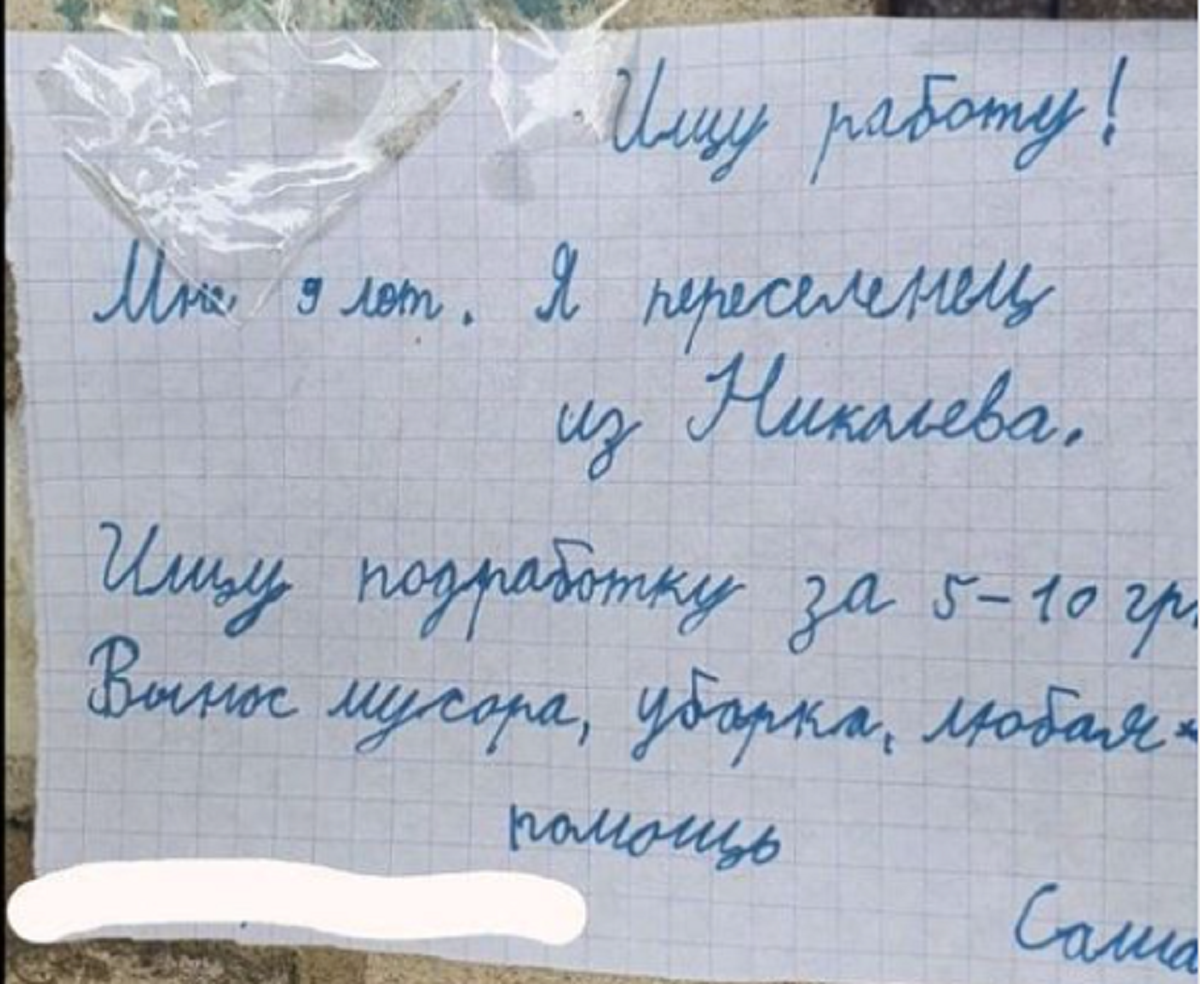 Ищу работу!
Мне 9 лет. Я переселенец
из Николаева.
Ищу подработку за 5-10 гр
Вынос мусора, уборка, любая
помощь
Саша